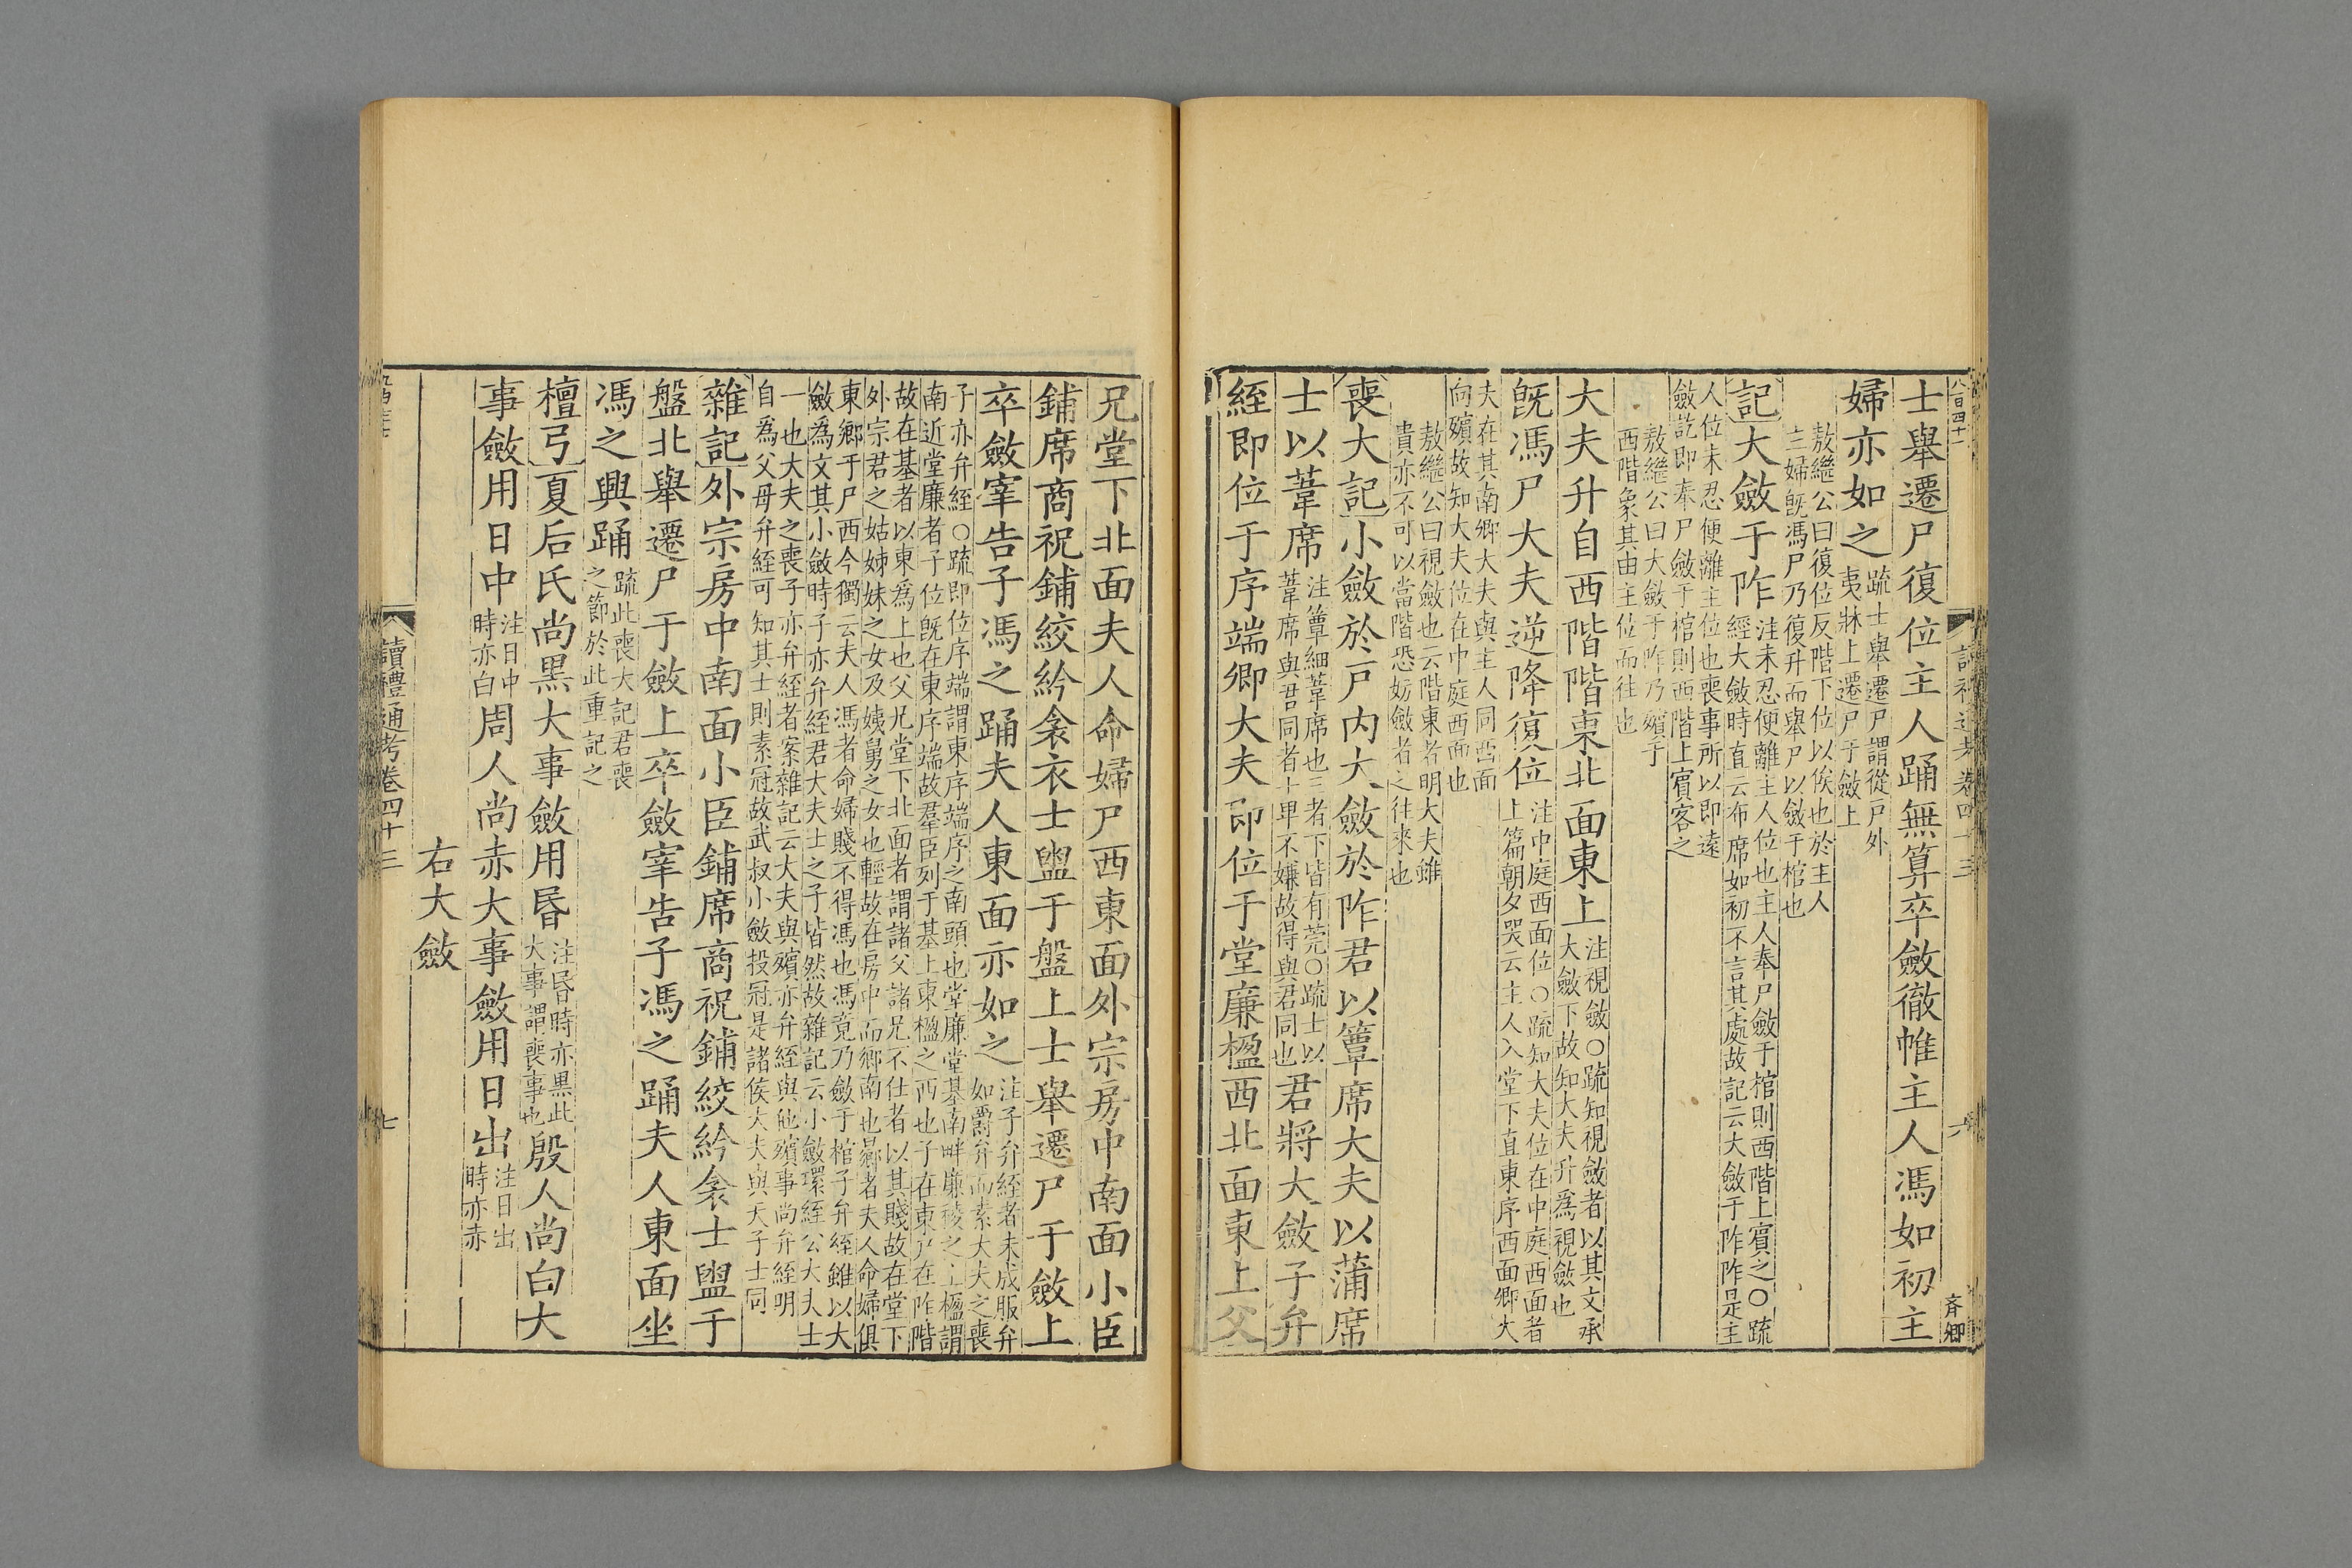 八百四十一
讀禮通考卷四十三
六
斉卿
士舉遷尸復位主人踊無算卒斂徹帷主人馮如初主
婦亦如之疏士舉遷尸謂從戶外
夷牀上遷尸于斂上
敖繼公曰復位反階下位以俟也於主人
主婦旣馮尸乃復升而舉尸以斂于棺也
記大斂于阼注未忍便離主人位也主人奉尸斂于棺則西階上賓之○疏
經大斂時直云布席如初不言其處故記云大斂于阼阼是主
人位未忍便離主位也喪事所以即遠
斂訖即奉尸斂于棺則西階上賓客之
敖繼公曰大斂于阼乃殯于
西階象其由主位而往也
大夫升自西階階東北面東上注視斂○疏知視斂者以其文承
大斂下故知大夫升爲視斂也
旣馮尸大夫逆降復位注中庭西面位○疏知大夫位在中庭西面者
上篇朝夕哭云主人入堂下直東序西面卿大
夫在其南卿大夫與主人同西面
向殯故知大夫位在中庭西面也
敖繼公曰視斂也云階東者明大夫雖
貴亦不可以當階恐妨斂者之往來也
喪大記小斂於戶内大斂於阼君以簟席大夫以蒲席
士以葦席注簟細葦席也三者下皆有莞○疏士以
葦席與君同者士卑不嫌故得與君同也君將大斂子弁
絰即位于序端卿大夫即位于堂廉楹西北面東上父
兄堂下北面夫人命婦尸西東面外宗房中南面小臣
鋪席商祝鋪絞紟衾衣士盥于盤上士舉遷尸于斂上
卒斂宰告子馮之踊夫人東面亦如之注子弁絰者未成服弁
如爵弁而素大夫之喪
子亦弁絰○疏即位序端謂東序端序之南頭也堂廉堂基南畔廉稜之上楹謂
南近堂廉者子位旣在東序端故羣臣列于基上東楹之西也子在東尸在阼階
故在基者以東爲上也父兄堂下北面者謂諸父諸兄不仕者以其賤故在堂下
外宗君之姑姊妹之女及姨舅之女也輕故在房中而鄉南也鄉者夫人命婦俱
東鄉于尸西今獨云夫人馮者命婦賤不得馮也馮竟乃斂于棺子弁絰雖以大
斂爲文其小斂時子亦弁絰君大夫士之子皆然故雜記云小斂環絰公大夫士
一也大夫之喪子亦弁絰者案雜記云大夫與殯亦弁絰與他殯事尚弁絰明
自爲父母弁絰可知其士則素冠故武叔小斂投冠是諸侯大夫與天子士同
雜記外宗房中南面小臣鋪席商祝鋪絞紟衾士盥于
盤北舉遷尸于斂上卒斂宰告子馮之踊夫人東面坐
馮之興踊疏此喪大記君喪
之節於此重記之
檀弓夏后氏尚黑大事斂用昏注昏時亦黑此
大事謂喪事也殷人尚白大
事斂用日中注日中
時亦白周人尚赤大事斂用日出注日出
時亦赤
右大斂
讀禮通考卷四十三
七